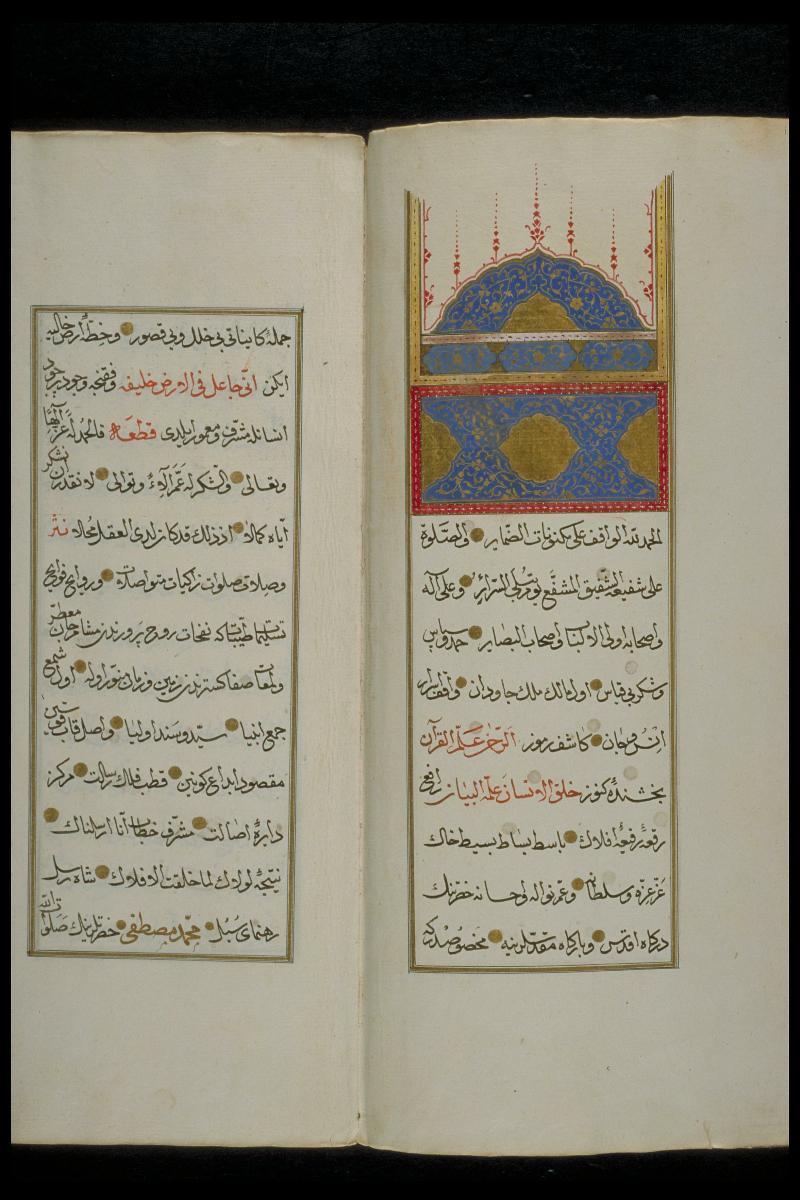 الحمد لله الواقف على مكنونات الضماير والصلوة
على شفيعه الشفيق المشفع يوم تبلى السرائر وعلى آله
واصحابه اولى الالباب واصحاب البصاير حمد وسپاس
وشكر بى قياس اول مالك ملك جاودان واقف اسرار
انس وجان كاشف رموز الرحمن علم القرآن
بخشندۀ كنوز خلق الانسان علمه البيان رافع
رقعۀ رفيعۀ افلاك باسط بساط بسيط خاك
عز عزه وسلطانه وعم نواله واحسانه حضرتنك
دركاه اقدس وباركاه مقدسلرينه مخصوصدر كه
جملۀ كايناتى بى خلل وبى قصور وخطۀ ارض خاليه
ايكن انى جاعل فى الارض خليفه وفقنجه وجود پر جود
انسانله مشرف ومعمور ايلدى قطعه فالحمد له عز آلها
وتعالى والشكر له عم آلاء وتوالى لا نقدر ان نشكر
اياه كمالا اذ ذلك قد كان لدى العقل محالا نثر
وصلاتى صلوات زاكيات متواصلات وروايح فوايح
تسليمات طيبات كه نفحات روح پرورندن مشام جان معطر
ولمعات صفا كسترندن زمين وزمان منور اوله اول شمع
جمع انبيا سيد وسند اوليا واصل قاب قوسين
مقصود ابداع كونين قطب فلك رسالت مركز
دايرۀ اصالت مشرف خطاب انا ارسلناك
نتيجۀ لولاك لما خلقت الافلاك شاه رسل
رهنماى سبل محمد مصطفى حضرتلرينك صلوات الله